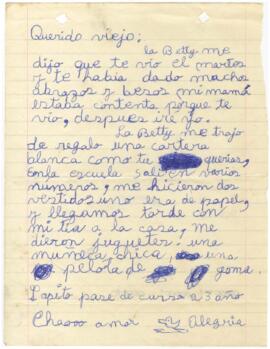 Querido viejo:
la Betty me
dijo que te vio el martes
y te había dado muchos
abrazos y besos mi mamá
estaba contenta porque te
vio, despues ire yo.
La Betty me trajo
de regalo una cartera
blanca como tu querias,
en la escuela salí en varios
numeros, me hicieron dos
vestidos uno era de papel,
y llegamos tarde con
mi tia a la casa, me
dieron juguetes: una
muneca chica, una
pelota de goma.
Papito pase de curso a 3 año
Chaooo amor Alegria